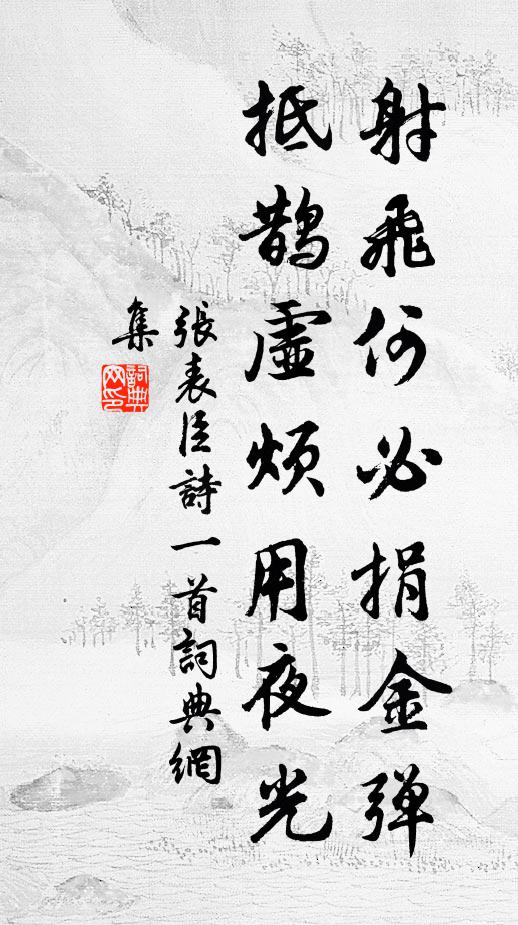 射飛何必捐金弹
抵鹊虛烦用夜光
張表臣詩一首詞典網
集
詞典
网印